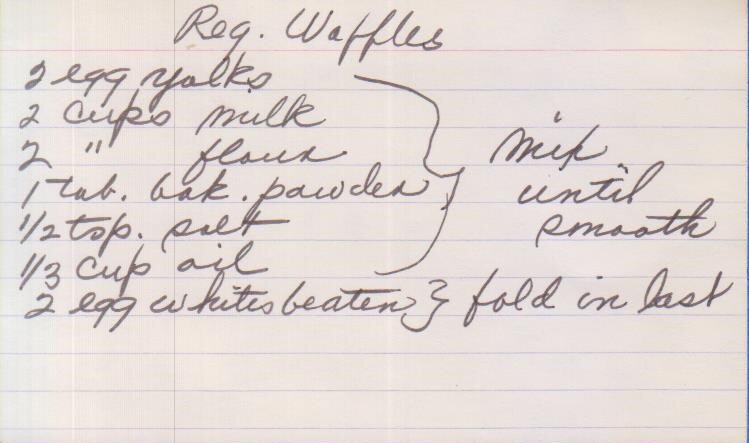 Reg. Waffles
2 egg yolks
2 cups milk
2 " flour
1 tab. bak. powder
1/2 tsp. salt
1/3 cup oil
} mix until smooth
2 egg whites beaten } fold in last